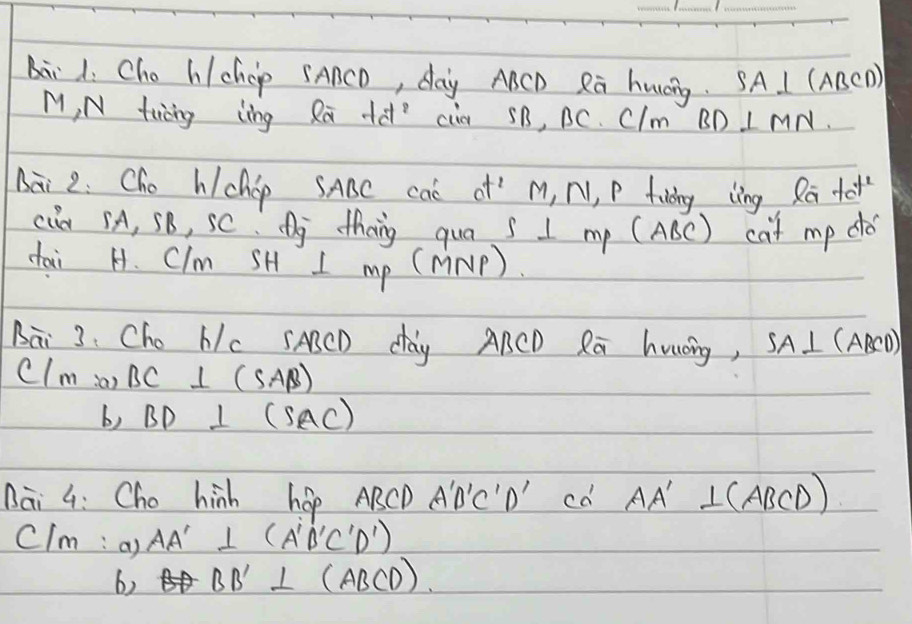 Bài 1: Cho h/chóp SABCD, đáy ABCD là hvuông. SA ⊥ (ABCD)
M, N tương ứng là tđ² của SB, BC. C/m BD ⊥ MN.
Bài 2: Cho h/chóp SABC các đ' M, N, P tương ứng là tđ²
của SA, SB, SC. Đg thẳng qua S ⊥ mp (ABC) cắt mp đó
tại H. C/m SH ⊥ mp (MNP).
Bài 3: Cho h/c SABCD đáy ABCD là hvuông, SA ⊥ (ABCD)
C/m : a) BC ⊥ (SAB)
b) BD ⊥ (SAC)
Bài 4: Cho hình hộp ABCD A'B'C'D' có AA' ⊥ (ABCD).
C/m : a) AA' ⊥ (A'B'C'D')
b) BB' ⊥ (ABCD).